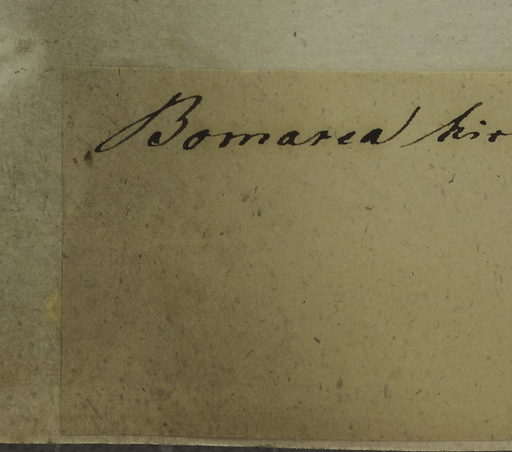 Bomarea hir